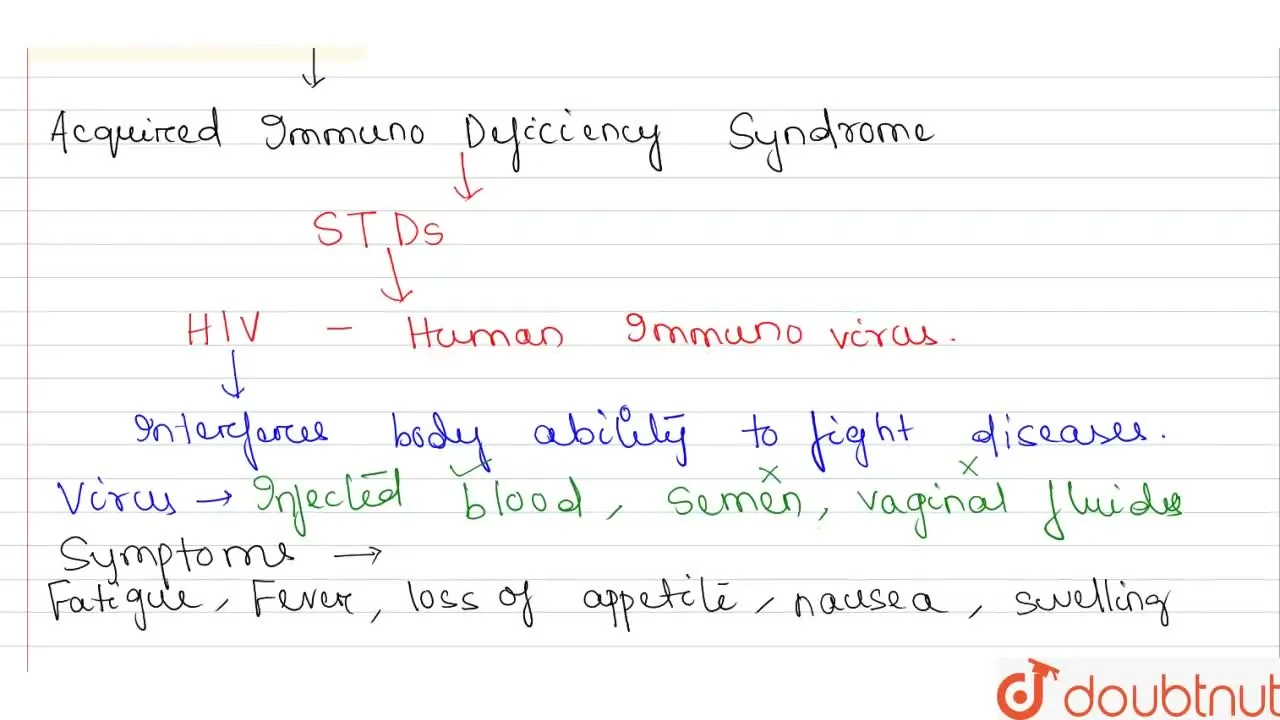 Acquired Immuno Deficiency Syndrome
STDs
HIV - Human Immuno virus.
Interferes body ability to fight diseases.
Virus → Infected blood, semen, vaginal fluids
Symptoms →
Fatigue, Fever, loss of appetite, nausea, swelling
doubtnut